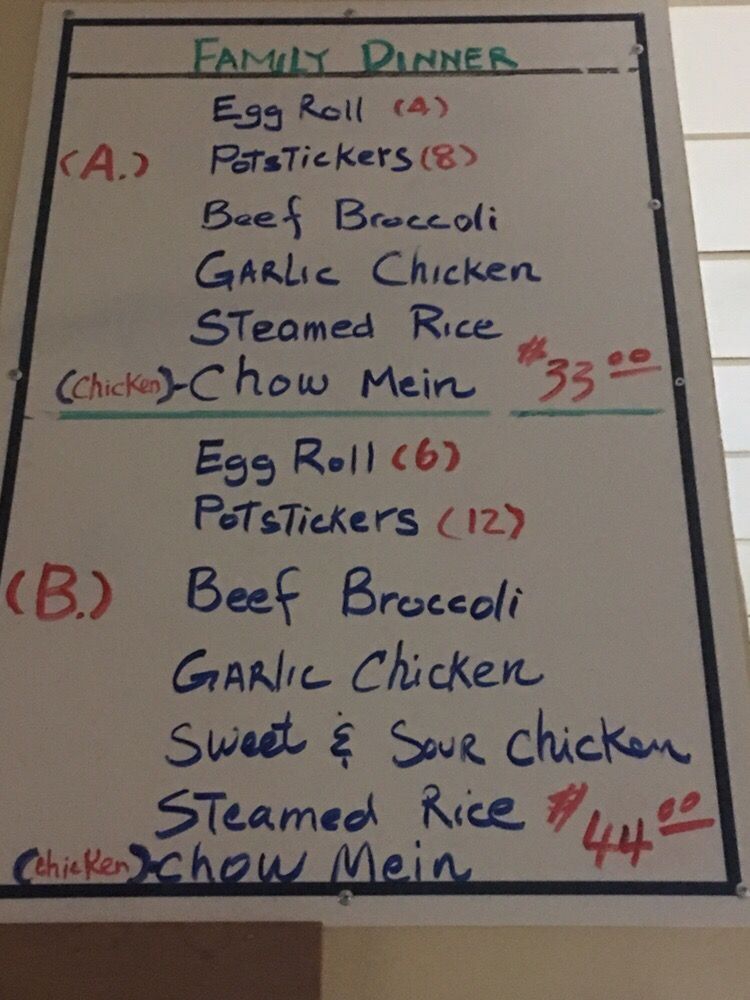 FAMILY DINNER
Egg Roll (4)
(A.) PotsTickers (8)
Beef Broccoli
GARLIC Chicken
STeamed Rice
(Chicken)-Chow Mein $33.00
Egg Roll (6)
PotsTickers (12)
(B.) Beef Broccoli
GARlic Chicken
Sweet & Sour chicken
STeamed Rice $44.00
(chicken)-chow Mein